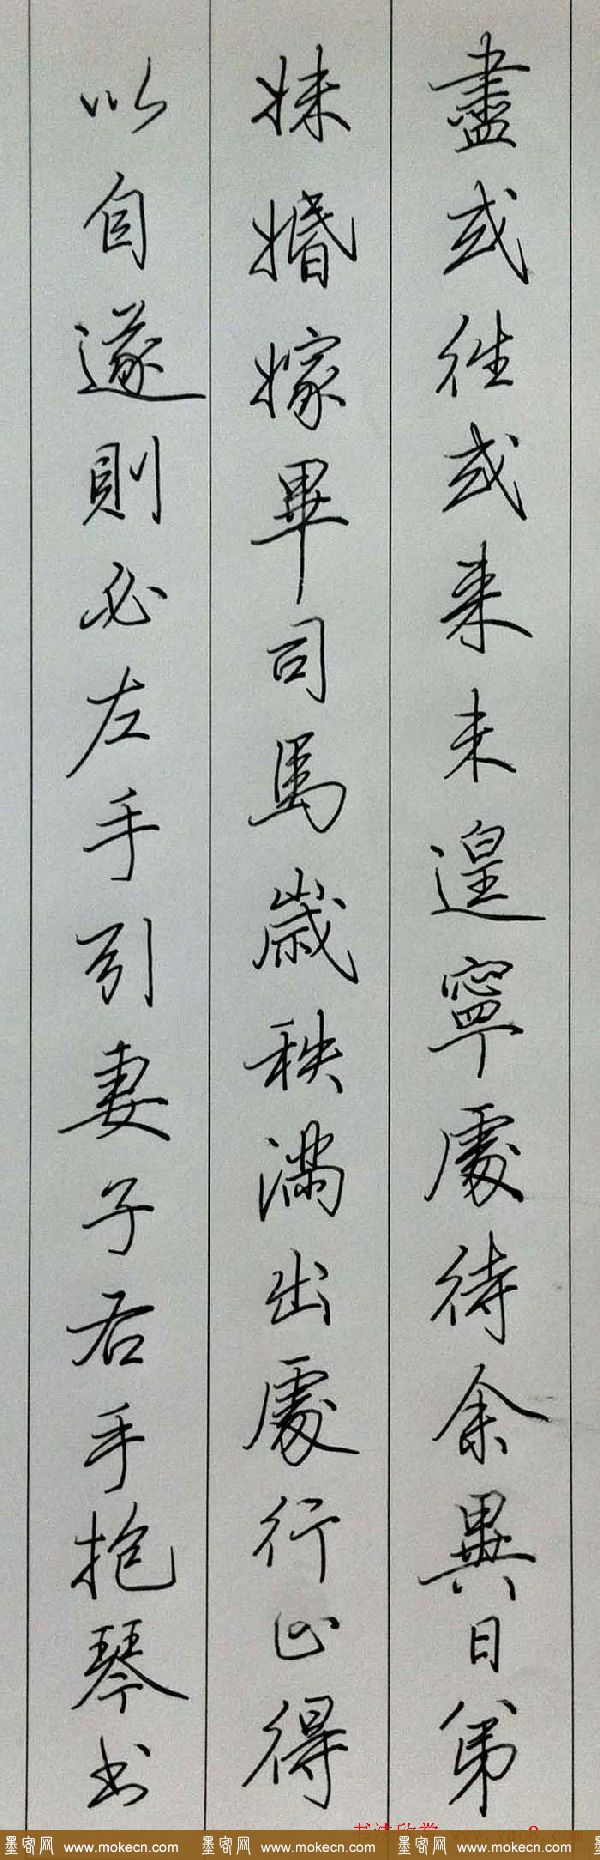 盡或往或来未遑寧處待余異日弟
妹婚嫁畢司馬歲秩滿出處行止得
以自遂則必左手引妻子右手抱琴书
墨客网 www.mokecn.com 墨客网 www.mokecn.com 墨客网 www.mokecn.com